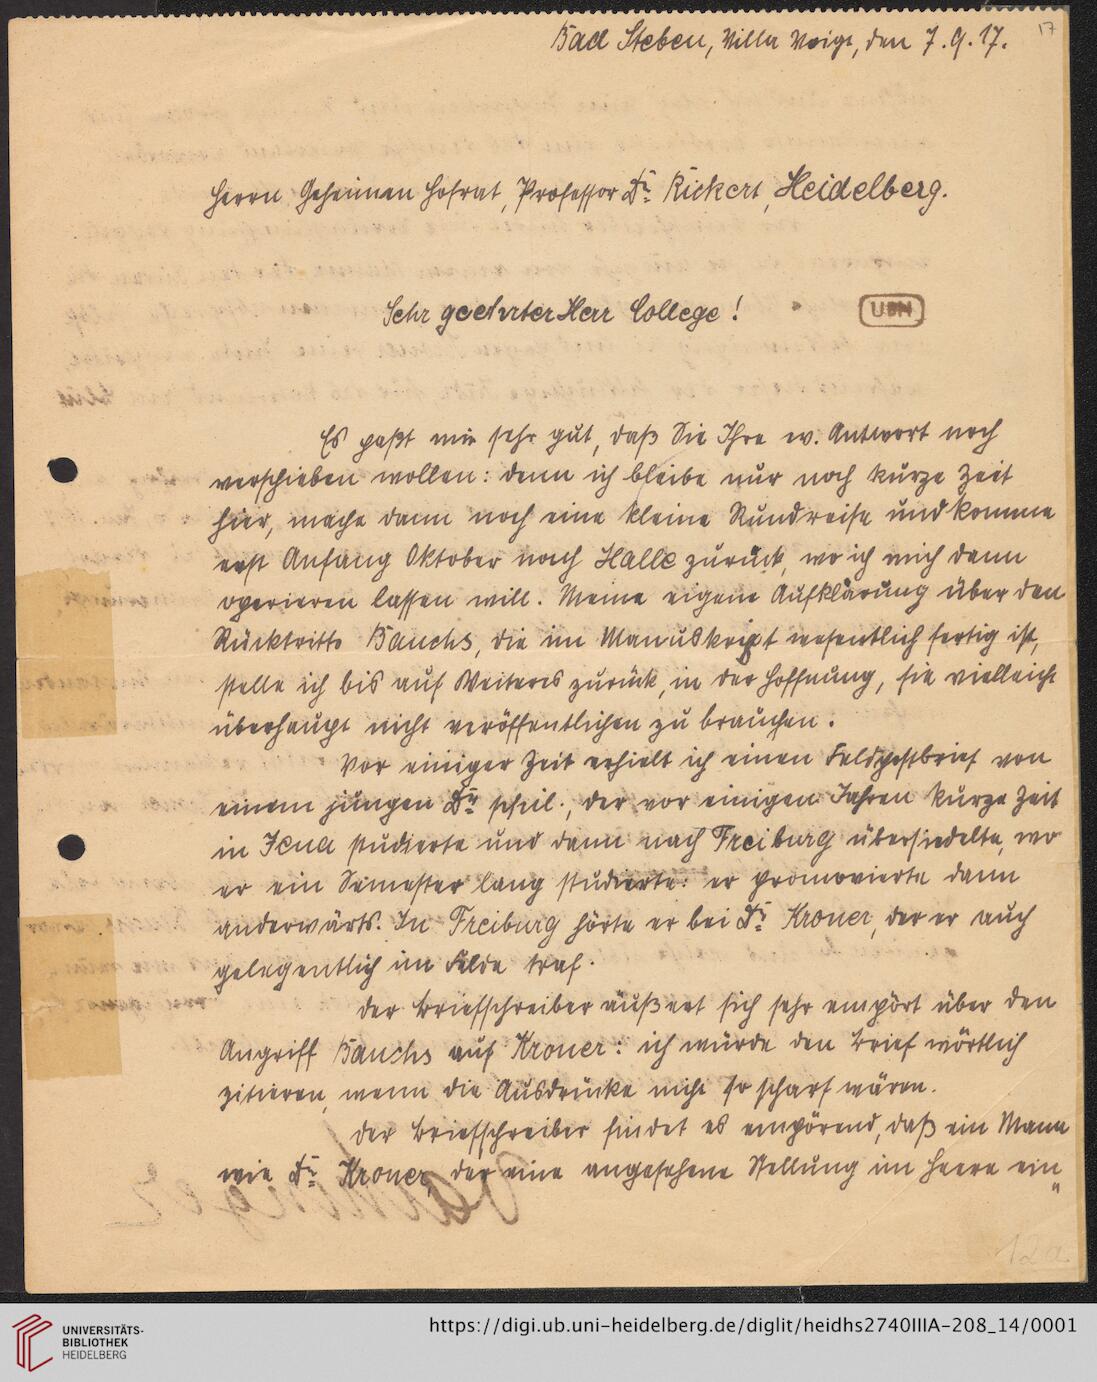 17
Bad Steben, Villa Voigt, den 7.9.17.
Herrn Geheimen Hofrat, Professor Dr. Rickert, Heidelberg.
Sehr geehrter Herr College!
UBH
Es paßt mir sehr gut, daß Sie Ihre w. Antwort noch
verschieben wollen: denn ich bleibe nur noch kurze Zeit
hier, mache dann noch eine kleine Rundreise und komme
erst Anfang Oktober nach Halle zurück, wo ich mich dann
operieren lassen will. Meine eigene Aufklärung über den
Rücktritt Bauchs, die im Manuskript wesentlich fertig ist,
stelle ich bis auf Weiteres zurück, in der Hoffnung, sie vielleicht
überhaupt nicht veröffentlichen zu brauchen.
Vor einiger Zeit erhielt ich einen Feldpostbrief von
einem jungen Dr. phil., der vor einigen Jahren kurze Zeit
in Jena studierte und dann nach Freiburg übersiedelte, wo
er ein Semester lang studierte: er promovierte dann
anderwärts. In Freiburg hörte er bei Dr. Kroner, der er auch
gelegentlich im Felde traf.
Der Briefschreiber äußert sich sehr empört über den
Angriff Bauchs auf Kroner: ich würde den Brief wörtlich
zitieren, wenn die Ausdrücke nicht so scharf wären.
Der Briefschreiber findet es empörend, daß ein Mann
wie Dr. Kroner, der eine angesehene Stellung im Heere ein„
12a
UNIVERSITÄTS-
BIBLIOTHEK
HEIDELBERG
https://digi.ub.uni-heidelberg.de/diglit/heidhs2740IIIA-208_14/0001